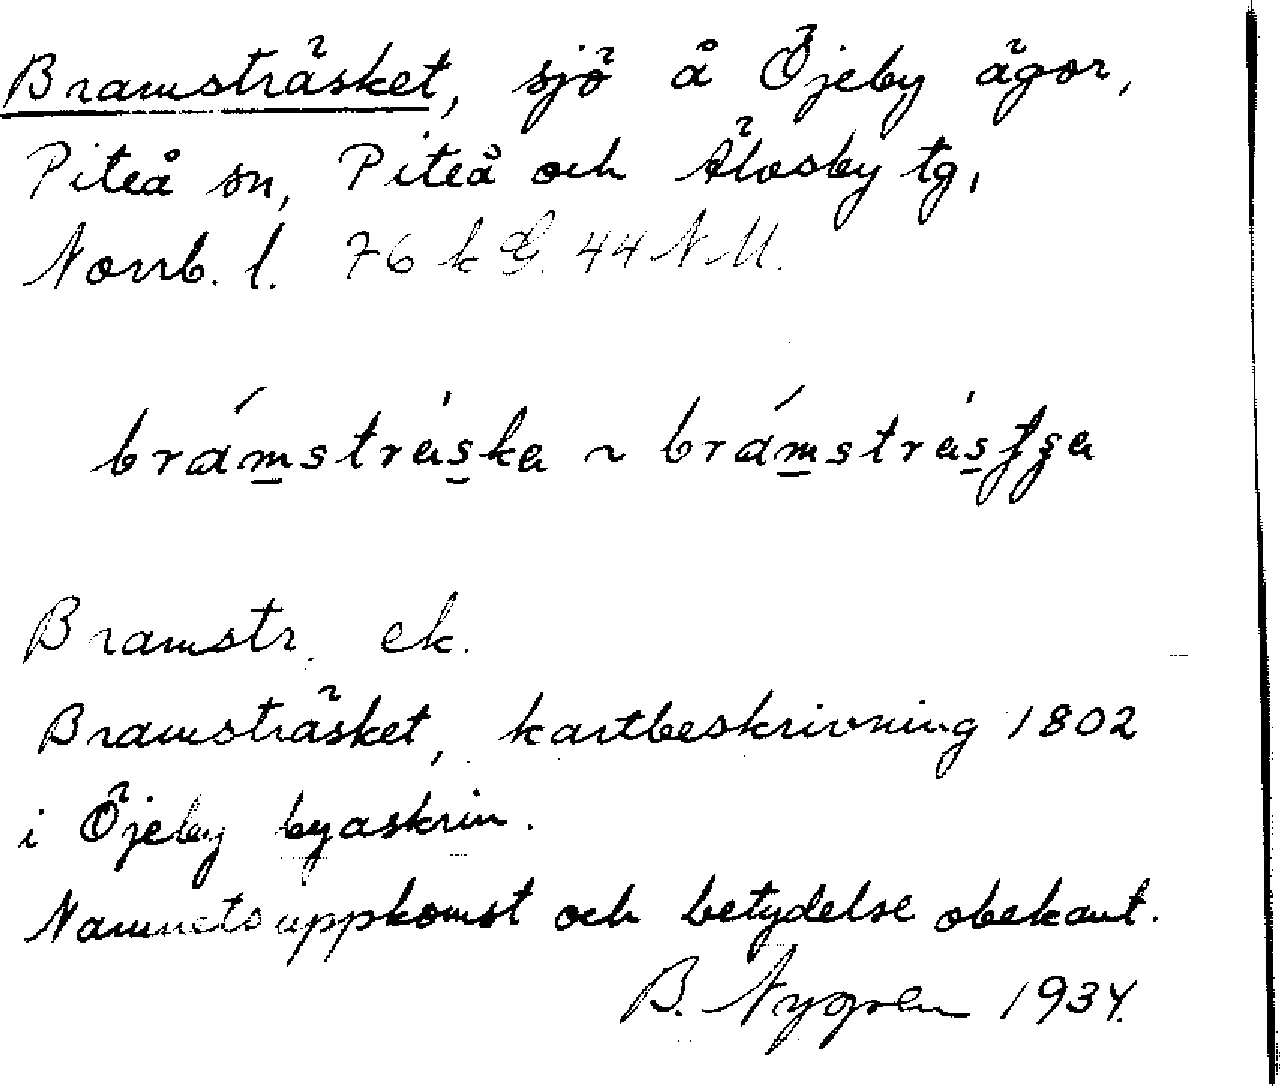 Bramsträsket, sjö å Öjeby ägor,
Piteå sn, Piteå och Älvsby tg,
Norrb. l. 76 k G. 44 N.M.
brámstrȧska ~ brámstrȧsʃʂa
Bramstr. ek.
Bramsträsket, kartbeskrivning 1802
i Öjeby byaskrin.
Namnets uppkomst och betydelse obekant.
B. Nygren 1934.